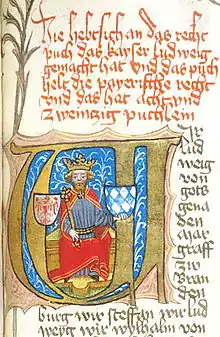 Hie hebt sich an das recht
puch das kayser ludweig
gemacht hat Und das puch
helt die payerische recht
und das hat acht und
zweintzig puechlein
Wir
lud
weig
von
gots
gena
den
mar
graff
zw
bran
den
burg wir steffan wir lud
weyg wir wylhalm von